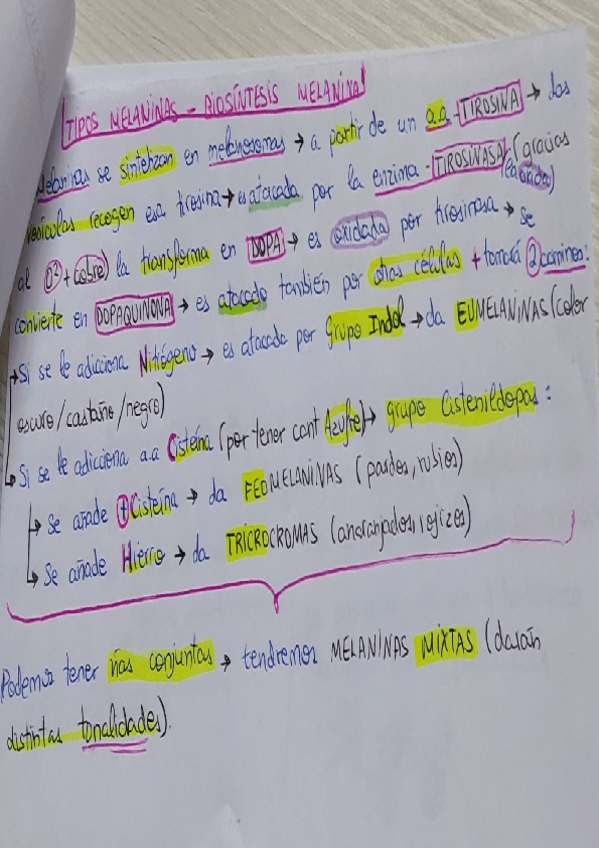 TIPOS MELANINAS - BIOSÍNTESIS MELANINA
Melaninas se sintetizan en melanosomas → a partir de un a.a - TIROSINA → las
vesículas recogen esa tirosina → es atacada por la enzima - TIROSINASA - (gracias
al O² + cobre) la transforma en DOPA → es oxidada por tirosinasa → se
(la oxida)
convierte en DOPAQUINONA → es atacado también por otras células + tomará 2 caminos:
→ Si se le adicciona Nitrógeno → es atacada por grupo Indol → da EUMELANINAS (color
oscuro/castaño/negro)
→ Si se le adicciona a.a Cisteína (por tener cant Azufre) → grupo Cistenildopas:
→ Se añade + Cisteína → da FEOMELANINAS (pardos, rubios)
→ Se añade Hierro → da TRICROCROMAS (anaranjados, rojizos)
Podemos tener vías conjuntas → tendremos MELANINAS MIXTAS (darán
distintas tonalidades).